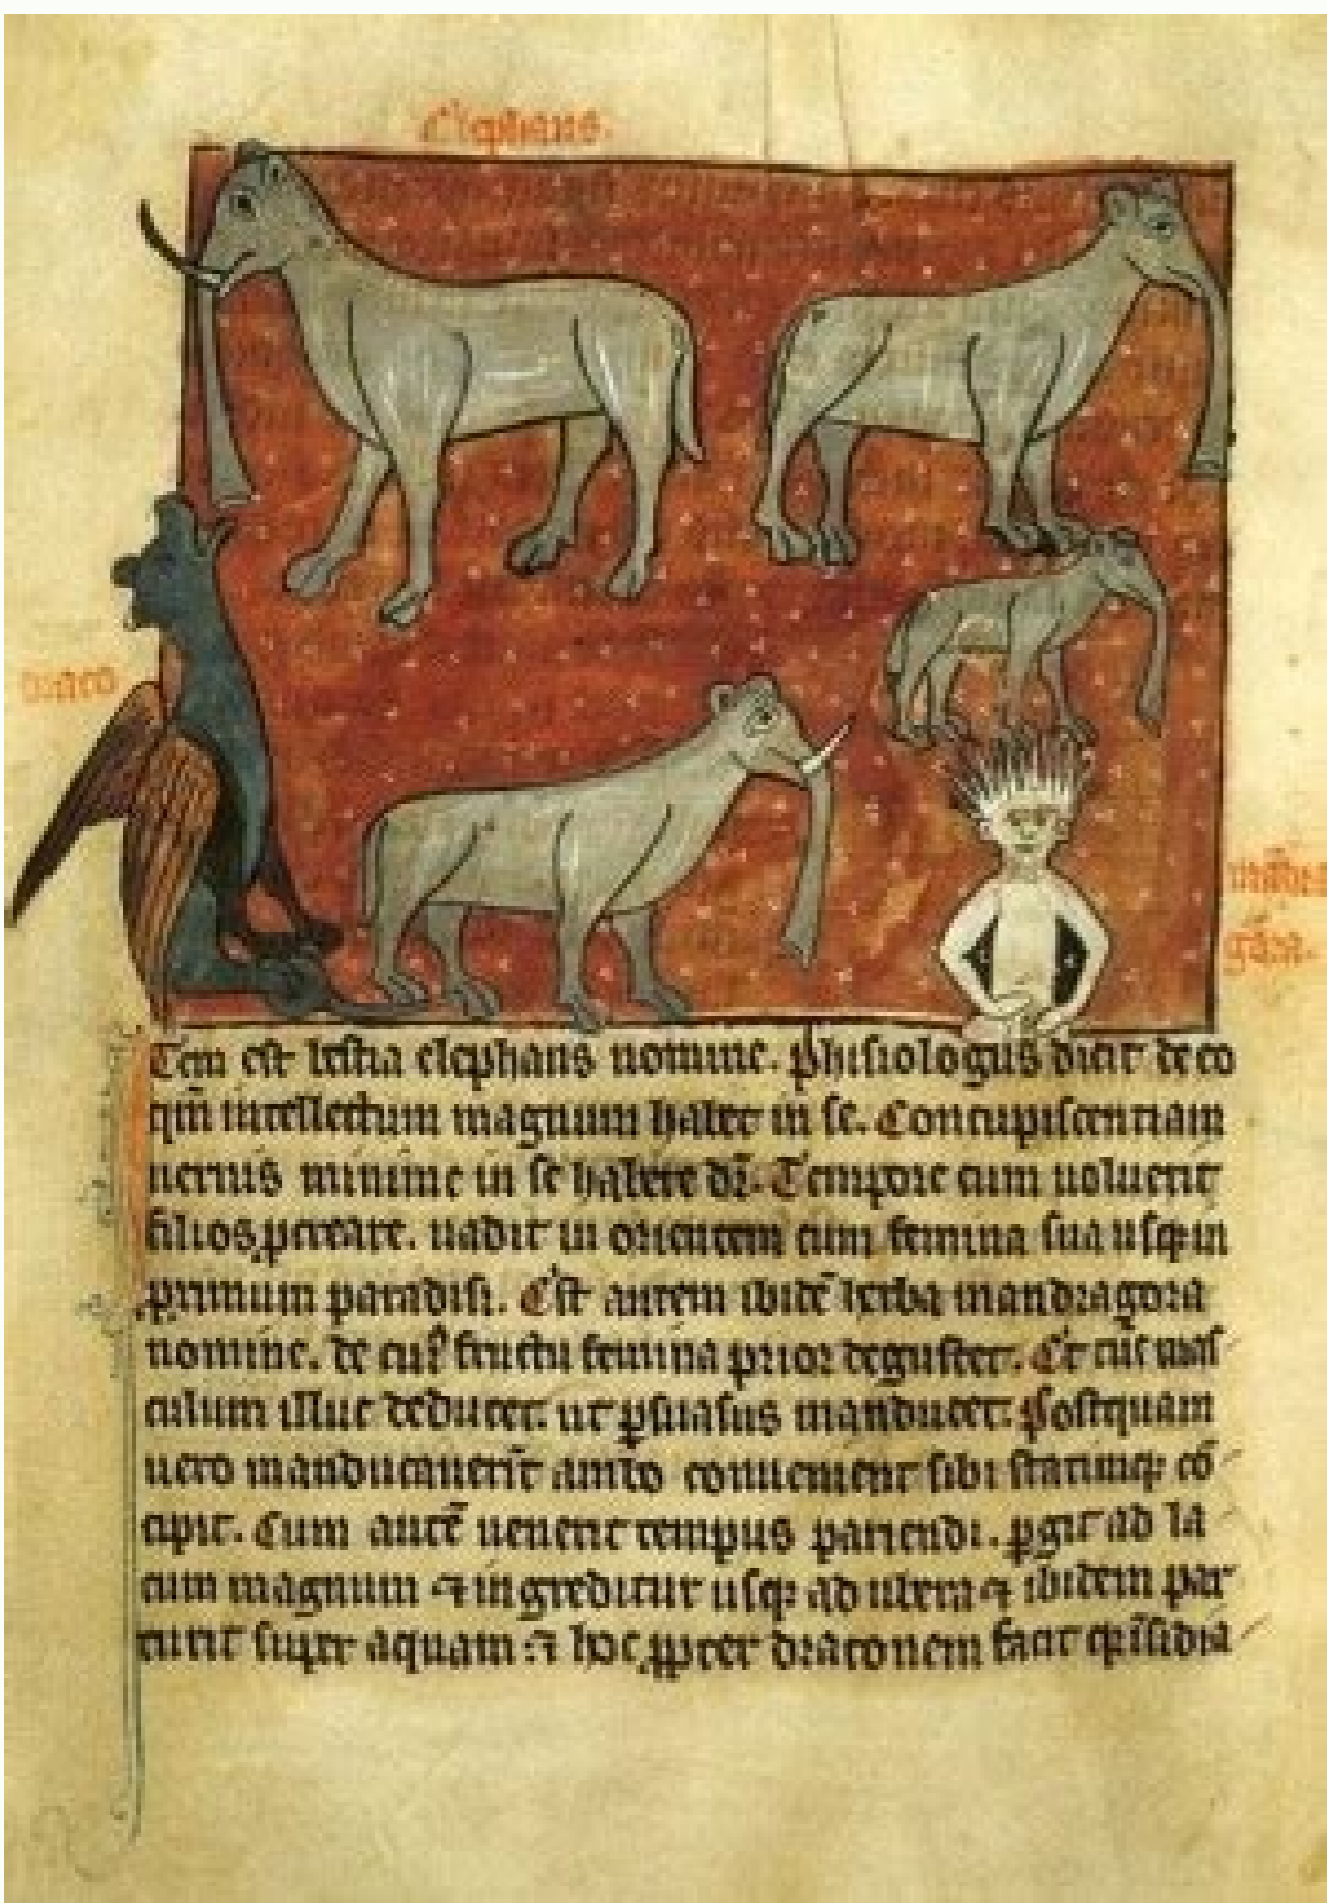 Elephans.
draco
mādra
gōra.
Item est bestia elephans nomine. phisiologus dicit de eo
qm̄ intellectum magnum habet in se. Concupiscentiam
uerius minime in se habere dr̄. Tempore cum uoluerit
filios pcreare. uadit in orientem cum femina sua usq; in
primum paradisi. Est autem ibidē herba mandragora
nomine. de cuiꝰ fructu femina prior degustet. Et
culum illuc deducet. ut psuasus manducet. Postquam
uero manducauerīt ambo conuenient sibi statimq; cō
cipit. Cum autē uenerit tempus pariendi. pgit ad la
cum magnum ⁊ ingreditur usq; ad ubera ⁊ ibidem par
turit super aquam ⁊ hoc ppter draconem facit